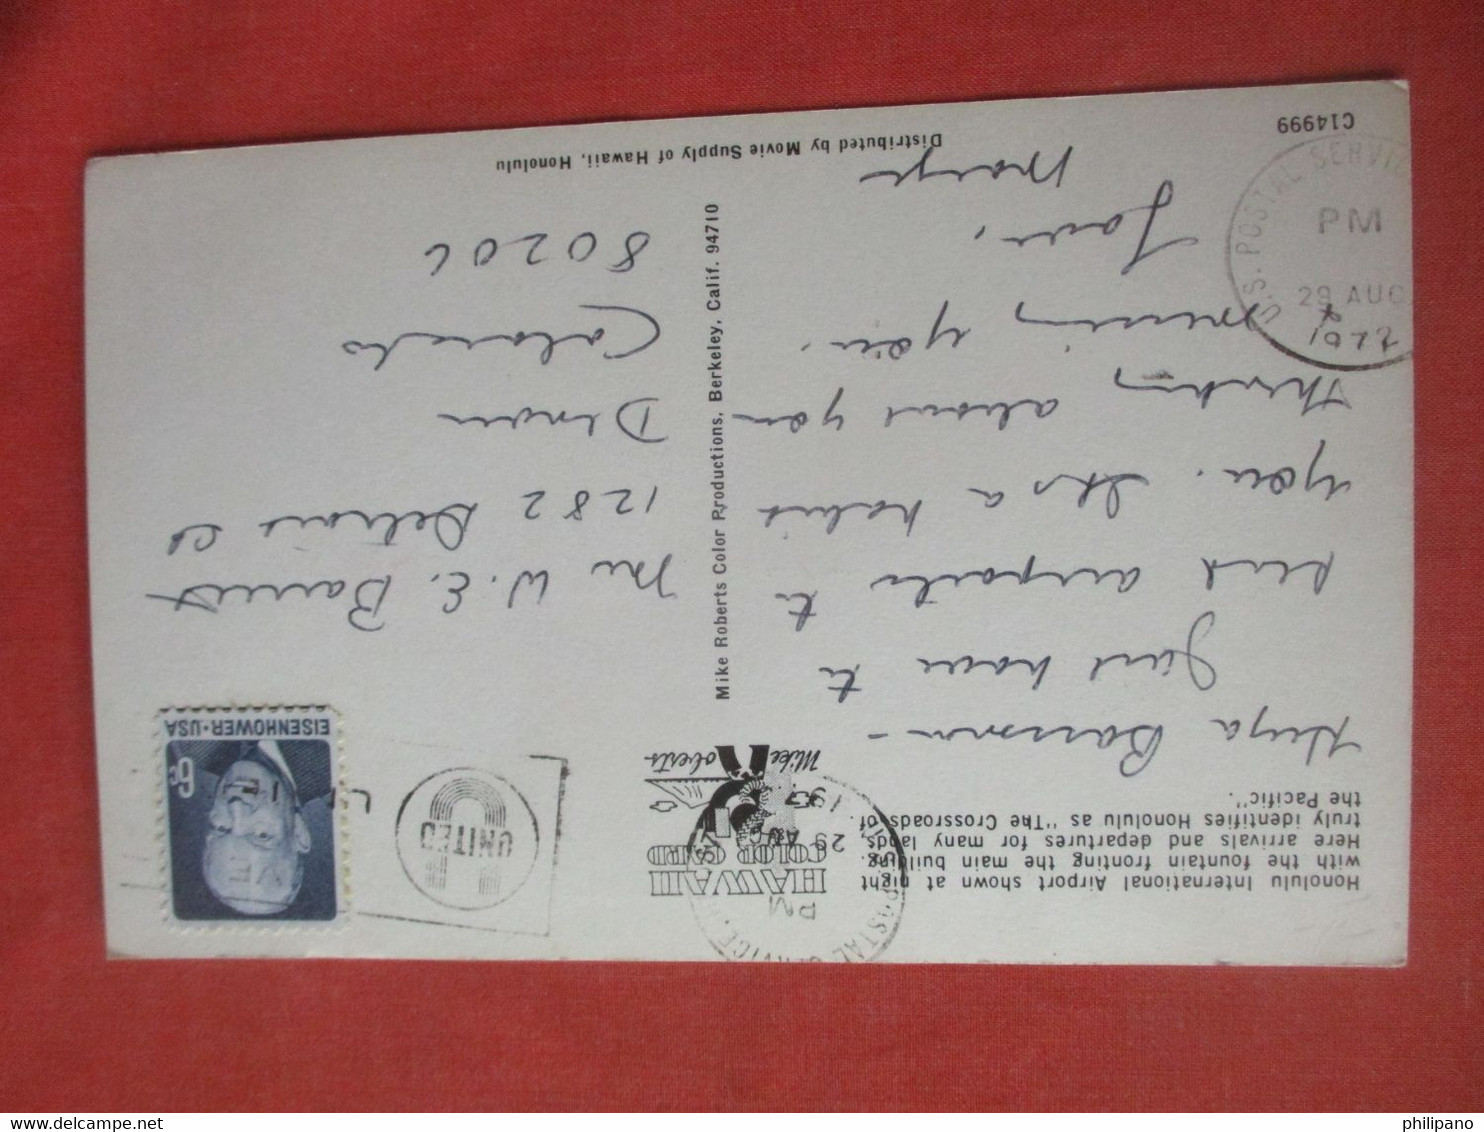 Honolulu International Airport shown at night
with the fountain fronting the main building.
Here arrivals and departures for many lands,
truly identifies Honolulu as "The Crossroads of
the Pacific".
Hiya
Just have to
find airports to
you. Its a habit
thinking about you
missing you.
Love,
Marge
C14999
U.S. POSTAL SERVIC
PM
29 AUG
1972
HAWAII
COLOR CARD
Mike Roberts
PM
29 AUG
197
POSTAL SERVICE
Mike Roberts Color Productions, Berkeley, Calif. 94710
UNITED
EISENHOWER·USA
6c
W. E. Barrett
1282 Detroit St
Denver
Colorado
80206
Distributed by Movie Supply of Hawaii, Honolulu
philipano